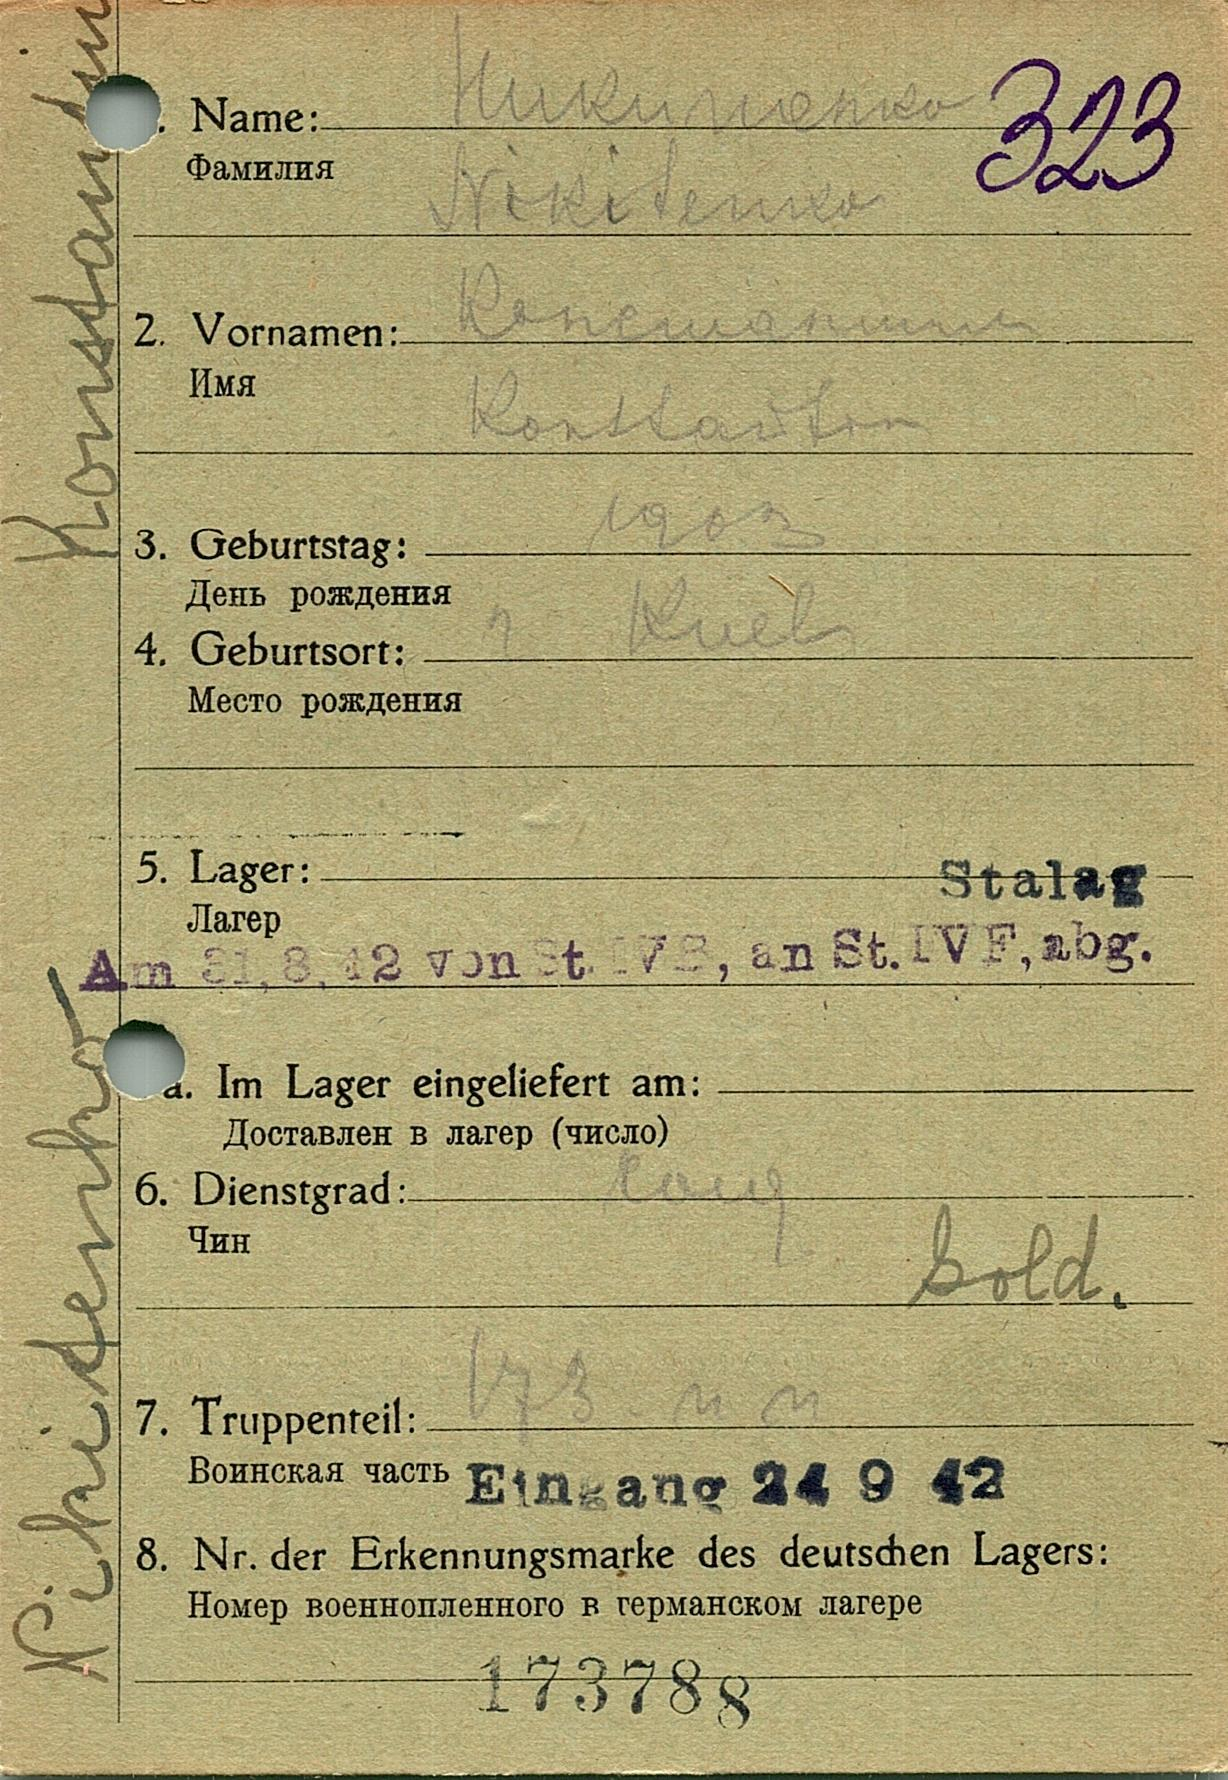 323
. Name: Никитенко
Фамилия
Nikitenko
2. Vornamen: Константин
Имя
Konstantin
3. Geburtstag: 1903
День рождения
4. Geburtsort: г. Киев
Место рождения
5. Lager: Stalag
Лагер
Am 31.8.42 von St. IVB, an St. IVF, abg.
a. Im Lager eingeliefert am:
Доставлен в лагер (число)
6. Dienstgrad:
Чин
Sold.
7. Truppenteil: 173
Воинская часть
Eingang 24 9 42
8. Nr. der Erkennungsmarke des deutschen Lagers:
Номер военнопленного в германском лагере
173788
Nikidenko Konstandin